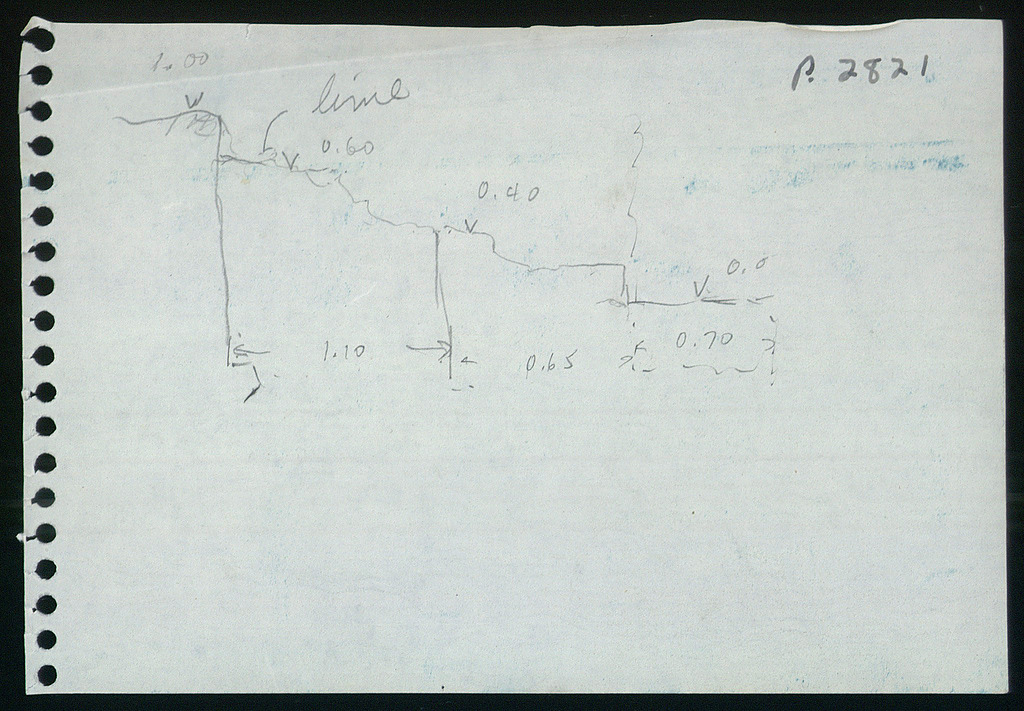 1.00
P. 2821
lime
0.60
0.40
0.0
1.10
0.65
0.70